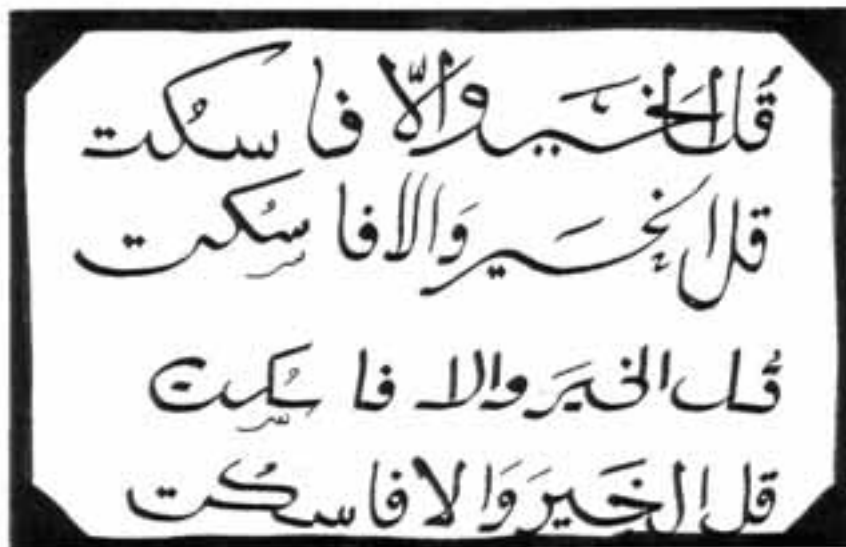 قُل الخير والّا فاسكُت
قل الخير وَالا فاسكُت
قُل الخيرَ والا فاسكُت
قل الخَيرَ وَالا فاسكُت